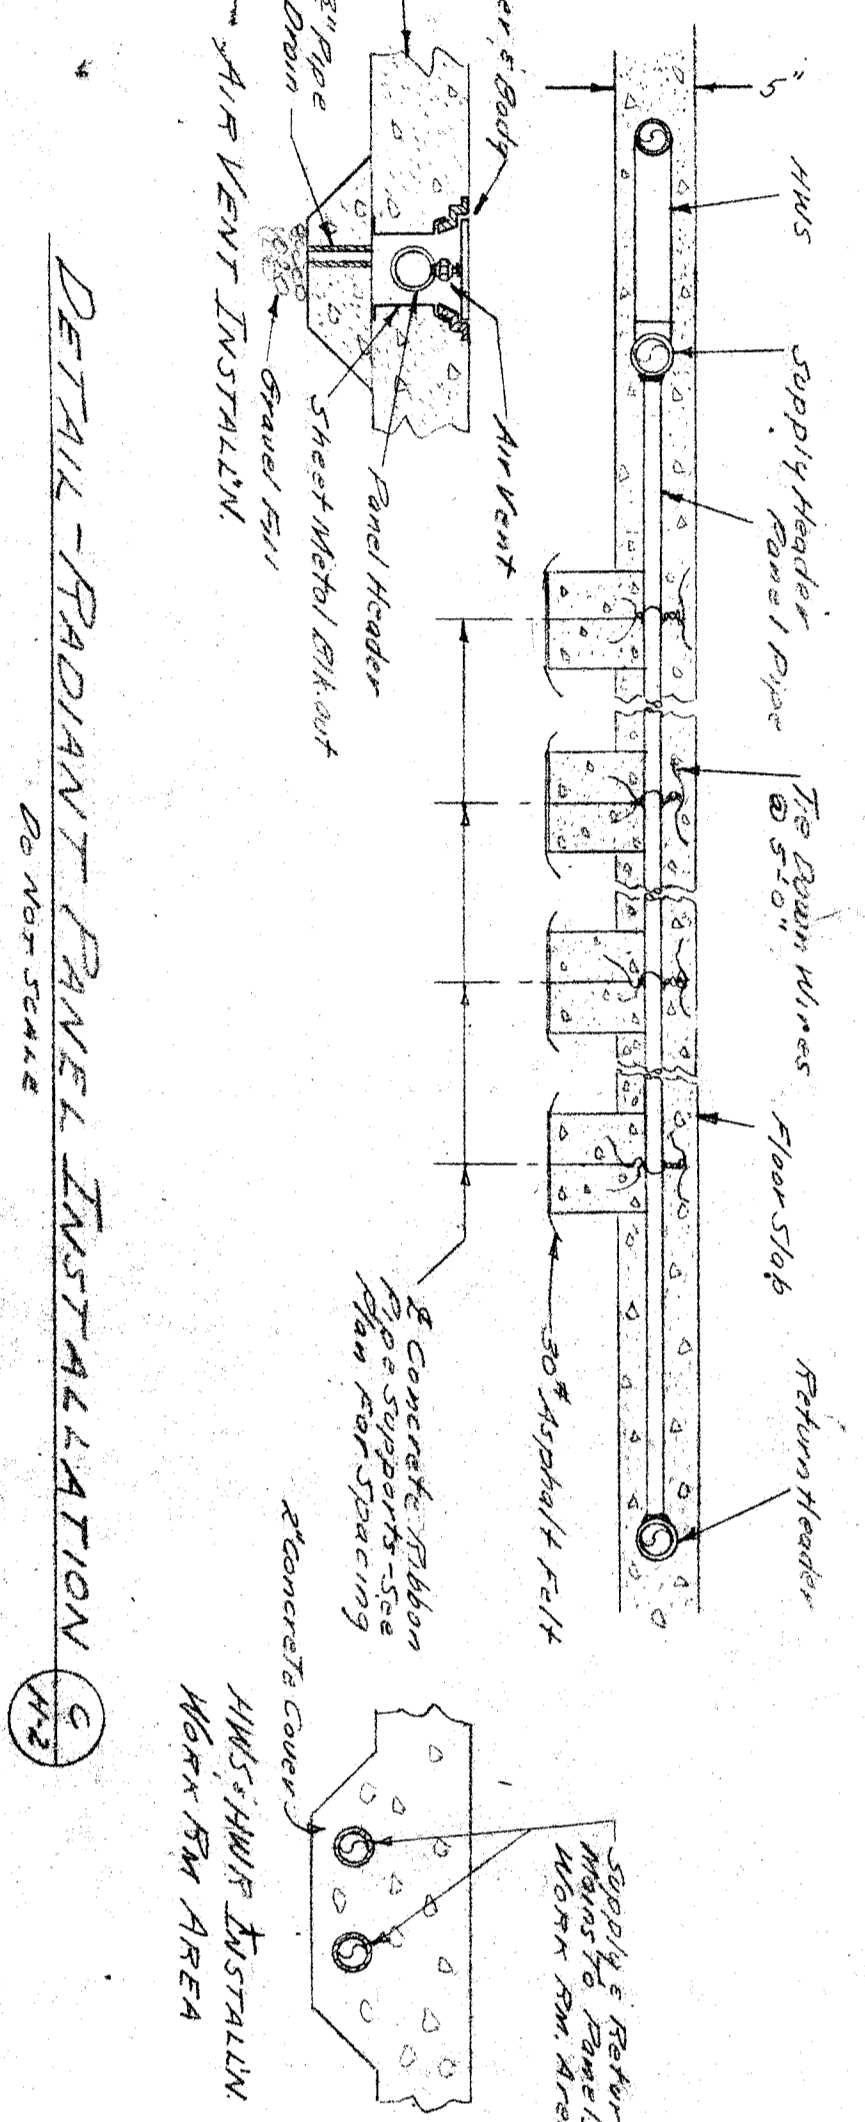 5"
HWS
Supply Header
Panel Pipe
Tie Down Wires
@ 5'-0"
Floor Slab
Return Header
30# Asphalt Felt
℄ Concrete Ribbon
Pipe Supports-See
Plan For Spacing
er & Body
Air Vent
Panel Header
Sheet Metal Blk-out
Gravel Fill
2" Pipe
Drain
AIR VENT INSTALL'N.
Supply & Retur
Mains To Panels
Work Rm. Area
2" Concrete Cover
HWS & HWR INSTALL'N.
WORK RM AREA
DETAIL-RADIANT PANEL INSTALLATION
DO NOT SCALE
H-2